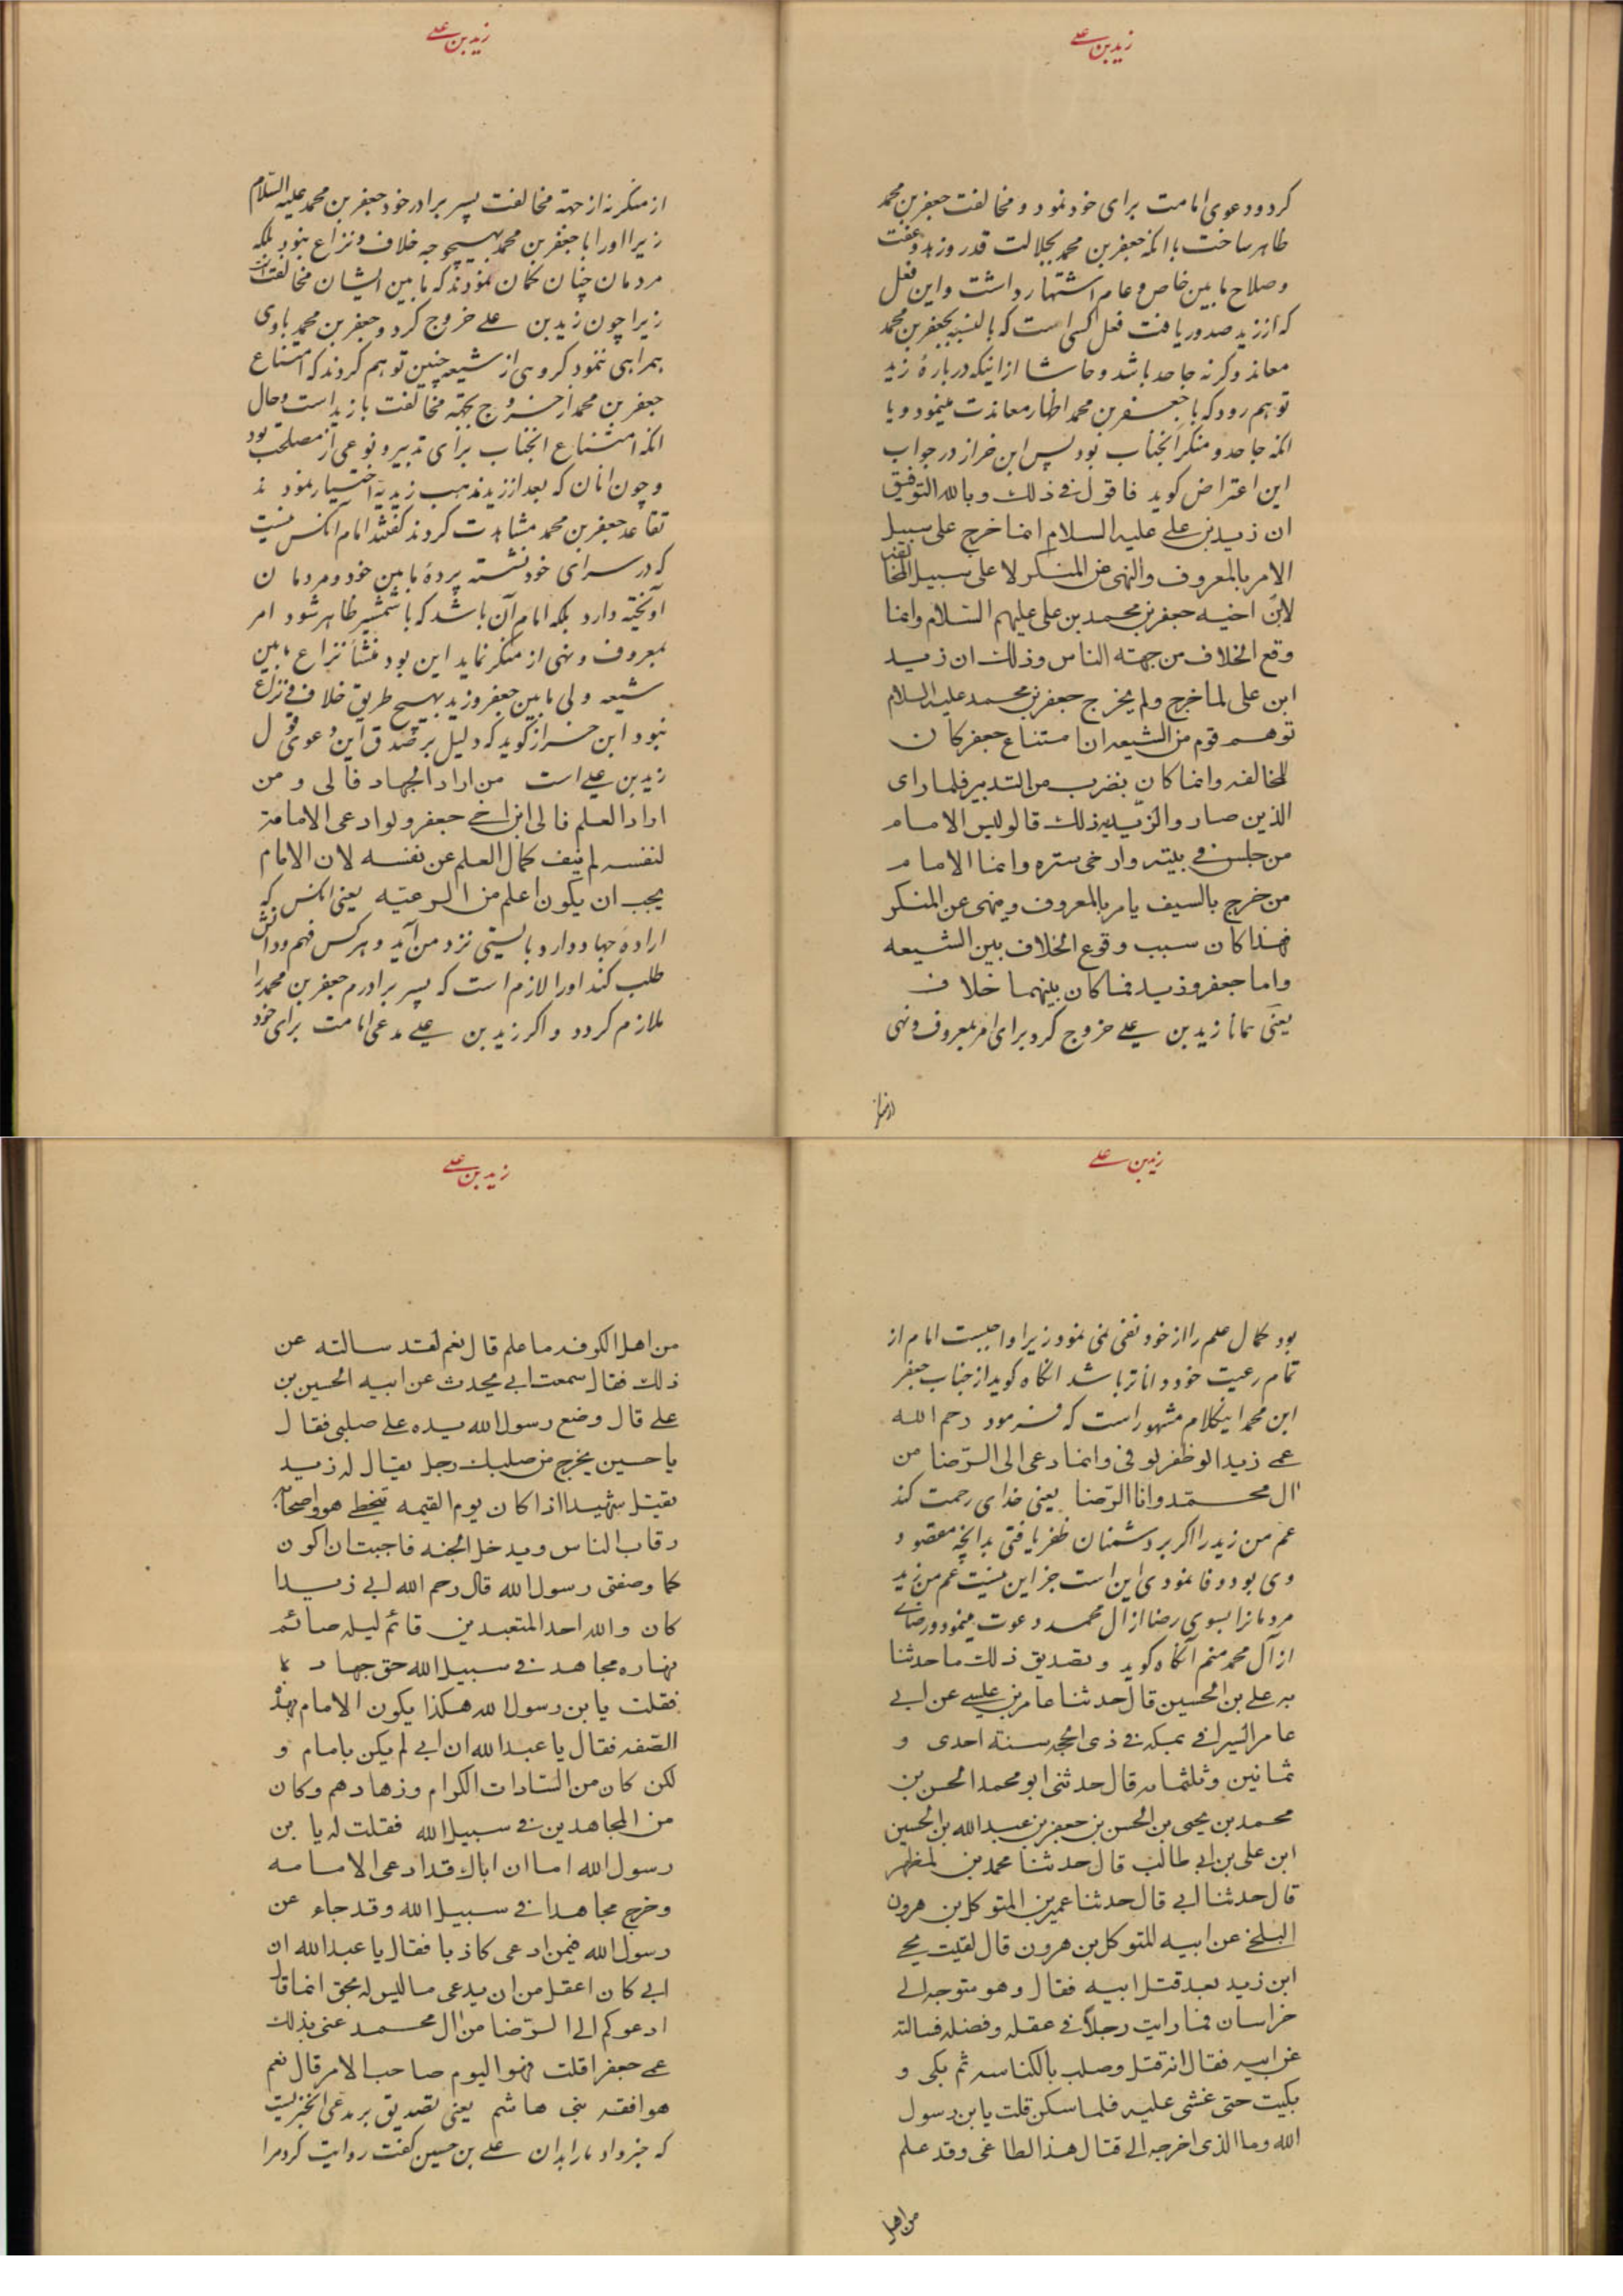 زید بن علی
کرد و دعوی امامت برای خود نمود و مخالفت جعفر بن محمد
ظاهر ساخت با انکه جعفر بن محمد بجلالت قدر و زهد و عفت
و صلاح مابین خاص و عام اشتهار داشت و این فعل
که از زید صدور یافت فعل کسی است که بالنسبه بجعفر بن محمد
معاند و کرنه جاحد باشد و حاشا از اینکه در بارهٔ زید
توهم رود که با جعفر بن محمد اظهار معاندت مینمود و یا
انکه جاحد و منکر انجناب بود پس ابن خراز در جواب
این اعتراض کوید فاقول فی ذلك و بالله التوفیق
ان زید بن علی علیه السلام انما خرج علی سبیل
الامر بالمعروف والنهی عن المنکر لا علی سبیل المخالفه
لابن اخیه جعفر بن محمد بن علی علیهم السلام وانما
وقع الخلاف من جهته الناس وذلك ان زید
ابن علی لما خرج ولم یخرج جعفر بن محمد علیه السلام
توهم قوم من الشیعه ان امتناع جعفر کان
للمخالفه وانما کان بضرب من التدبیر فلما رای
الذین صاروا الزیدیه ذلك قالوا لیس الامام
من جلس فی بیته وارخی ستره وانما الامام
من خرج بالسیف یامر بالمعروف وینهی عن المنکر
فهذا کان سبب وقوع الخلاف بین الشیعه
واما جعفر وزید فما کان بینهما خلاف
یعنی همانا زید بن علی خروج کرد برای امر بمعروف و نهی
از منکر
زید بن علی
از منکر نه از جهة مخالفت پسر برادر خود جعفر بن محمد علیه السلام
زیرا او را با جعفر بن محمد بهیچوجه خلاف و نزاع نبود بلکه
مردمان چنان کمان نمودند که مابین ایشان مخالفت است
زیرا چون زید بن علی خروج کرد و جعفر بن محمد با وی
همراهی ننمود کروهی از شیعه چنین توهم کردند که امتناع
جعفر بن محمد از خروج بجهة مخالفت با زید است و حال
انکه امتناع انجناب برای تدبیر و نوعی از مصلحت بود
و چون انان که بعد از زید مذهب زیدیه اختیار نمودند
تقاعد جعفر بن محمد مشاهدت کردند کفتند امام آنکس نیست
که در سرای خود نشسته پردهٔ مابین خود و مردمان
آویخته دارد بلکه امام آن باشد که با شمشیر ظاهر شود امر
بمعروف و نهی از منکر نماید این بود منشأ نزاع مابین
شیعه ولی مابین جعفر و زید بهیچ طریق خلاف و نزاع
نبود ابن خراز کوید که دلیل بر صدق این دعوی قول
زید بن علی است من اراد الجهاد فالی و من
اراد العلم فالی ابن اخی جعفر ولو ادعی الامامة
لنفسه لم ینف کمال العلم عن نفسه لان الامام
یجب ان یکون اعلم من الرعیته یعنی انکس که
ارادهٔ جهاد دارد بایستی نزد من آید و هر کس فهم و دانش
طلب کند او را لازم است که پسر برادرم جعفر بن محمد را
ملازم کردد و اکر زید بن علی مدعی امامت برای خود
زید بن علی
بود کمال علم را از خود نفی نمی نمود زیرا واجبست امام از
تمام رعیت خود داناتر باشد انکاه کوید از جناب جعفر
ابن محمد اینکلام مشهور است که فرمود رحم الله
عمی زیدا لو ظفر لوفی وانما دعی الی الرضا من
ال محمد وانا الرضا یعنی خدای رحمت کند
عم من زید را اکر بر دشمنان ظفر یافتی بدانچه مقصود
وی بود وفا نمودی این است جز این نیست عم من زید
مردمانرا بسوی رضا از ال محمد دعوت مینمود و رضای
از آل محمد منم آنکاه کوید و تصدیق ذلك ما حدثنا
به علی بن الحسین قال حدثنا عامر بن عیسی عن ابی
عامر السیرافی بمکه فی ذی الحجه سنة احدی و
ثمانین وثلثمائه قال حدثنی ابو محمد الحسن بن
محمد بن یحیی بن الحسن بن جعفر بن عبد الله بن الحسین
ابن علی بن ابی طالب قال حدثنا محمد بن المطهر
قال حدثنا ابی قال حدثنا عمیر بن المتوکل بن هرون
البلخی عن ابیه المتوکل بن هرون قال لقیت یحیی
ابن زید بعد قتل ابیه فقال وهو متوجه الی
خراسان فما رایت رجلاً فی عقله وفضله فسالته
عن ابیه فقال انه قتل وصلب بالکناسه ثم بکی و
بکیت حتی غشی علیه فلما سکن قلت یابن رسول
الله وما الذی اخرجه الی قتال هذا الطاغی وقد علم
من اهل
زید بن علی
من اهل الکوفه ما علم قال نعم لقد سالته عن
ذلك فقال سمعت ابی یحدث عن ابیه الحسین بن
علی قال وضع رسول الله یده علی صلبی فقال
یا حسین یخرج من صلبك رجل یقال له زید
یقتل شهیدا اذا کان یوم القیمه یتخطی هو واصحابه
رقاب الناس ویدخل الجنه فاجبت ان اکون
کما وصفنی رسول الله قال رحم الله ابی زیدا
کان والله احد المتعبدین قائم لیله صائم
نهاره مجاهد فی سبیل الله حق جهاده
فقلت یابن رسول الله هکذا یکون الامام بهذه
الصفه فقال یا عبد الله ان ابی لم یکن بامام و
لکن کان من السادات الکرام وزهادهم وکان
من المجاهدین فی سبیل الله فقلت له یا بن
رسول الله اما ان اباك قد ادعی الامامه
وخرج مجاهدا فی سبیل الله وقد جاء عن
رسول الله فیمن ادعی کاذبا فقال یا عبد الله ان
ابی کان اعقل من ان یدعی ما لیس له بحق انما قال
ادعوکم الی الرضا من ال محمد عنی بذلك
عمی جعفرا قلت فهو الیوم صاحب الامر قال نعم
هو افقه بنی هاشم یعنی تصدیق بر مدعی انخبریست
که خبر داد ما را بدان علی بن حسین کفت روایت کرد مرا